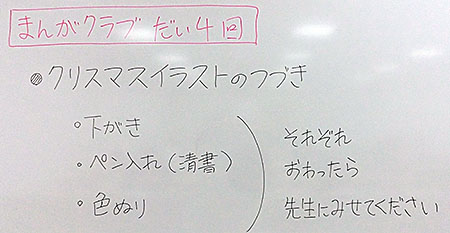 まんがクラブ だい4回
◎クリスマスイラストのつづき
・下がき
・ペン入れ(清書)
・色ぬり
それぞれ
おわったら
先生にみせてください